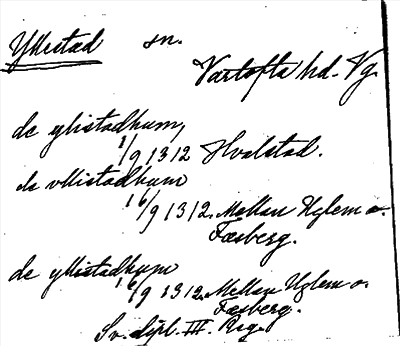 Yllestad sn.
Vartofta hd. Vg.
de ylistadhum,
1/9 1312 Hvalstad.
de vllistadhum
16/9 1312. Mellan Uglem o.
Fæsberg.
de yllistadhum
16/9 1312. Mellan Uglem o.
Fæsberg.
Sv. dipl. III. Reg.